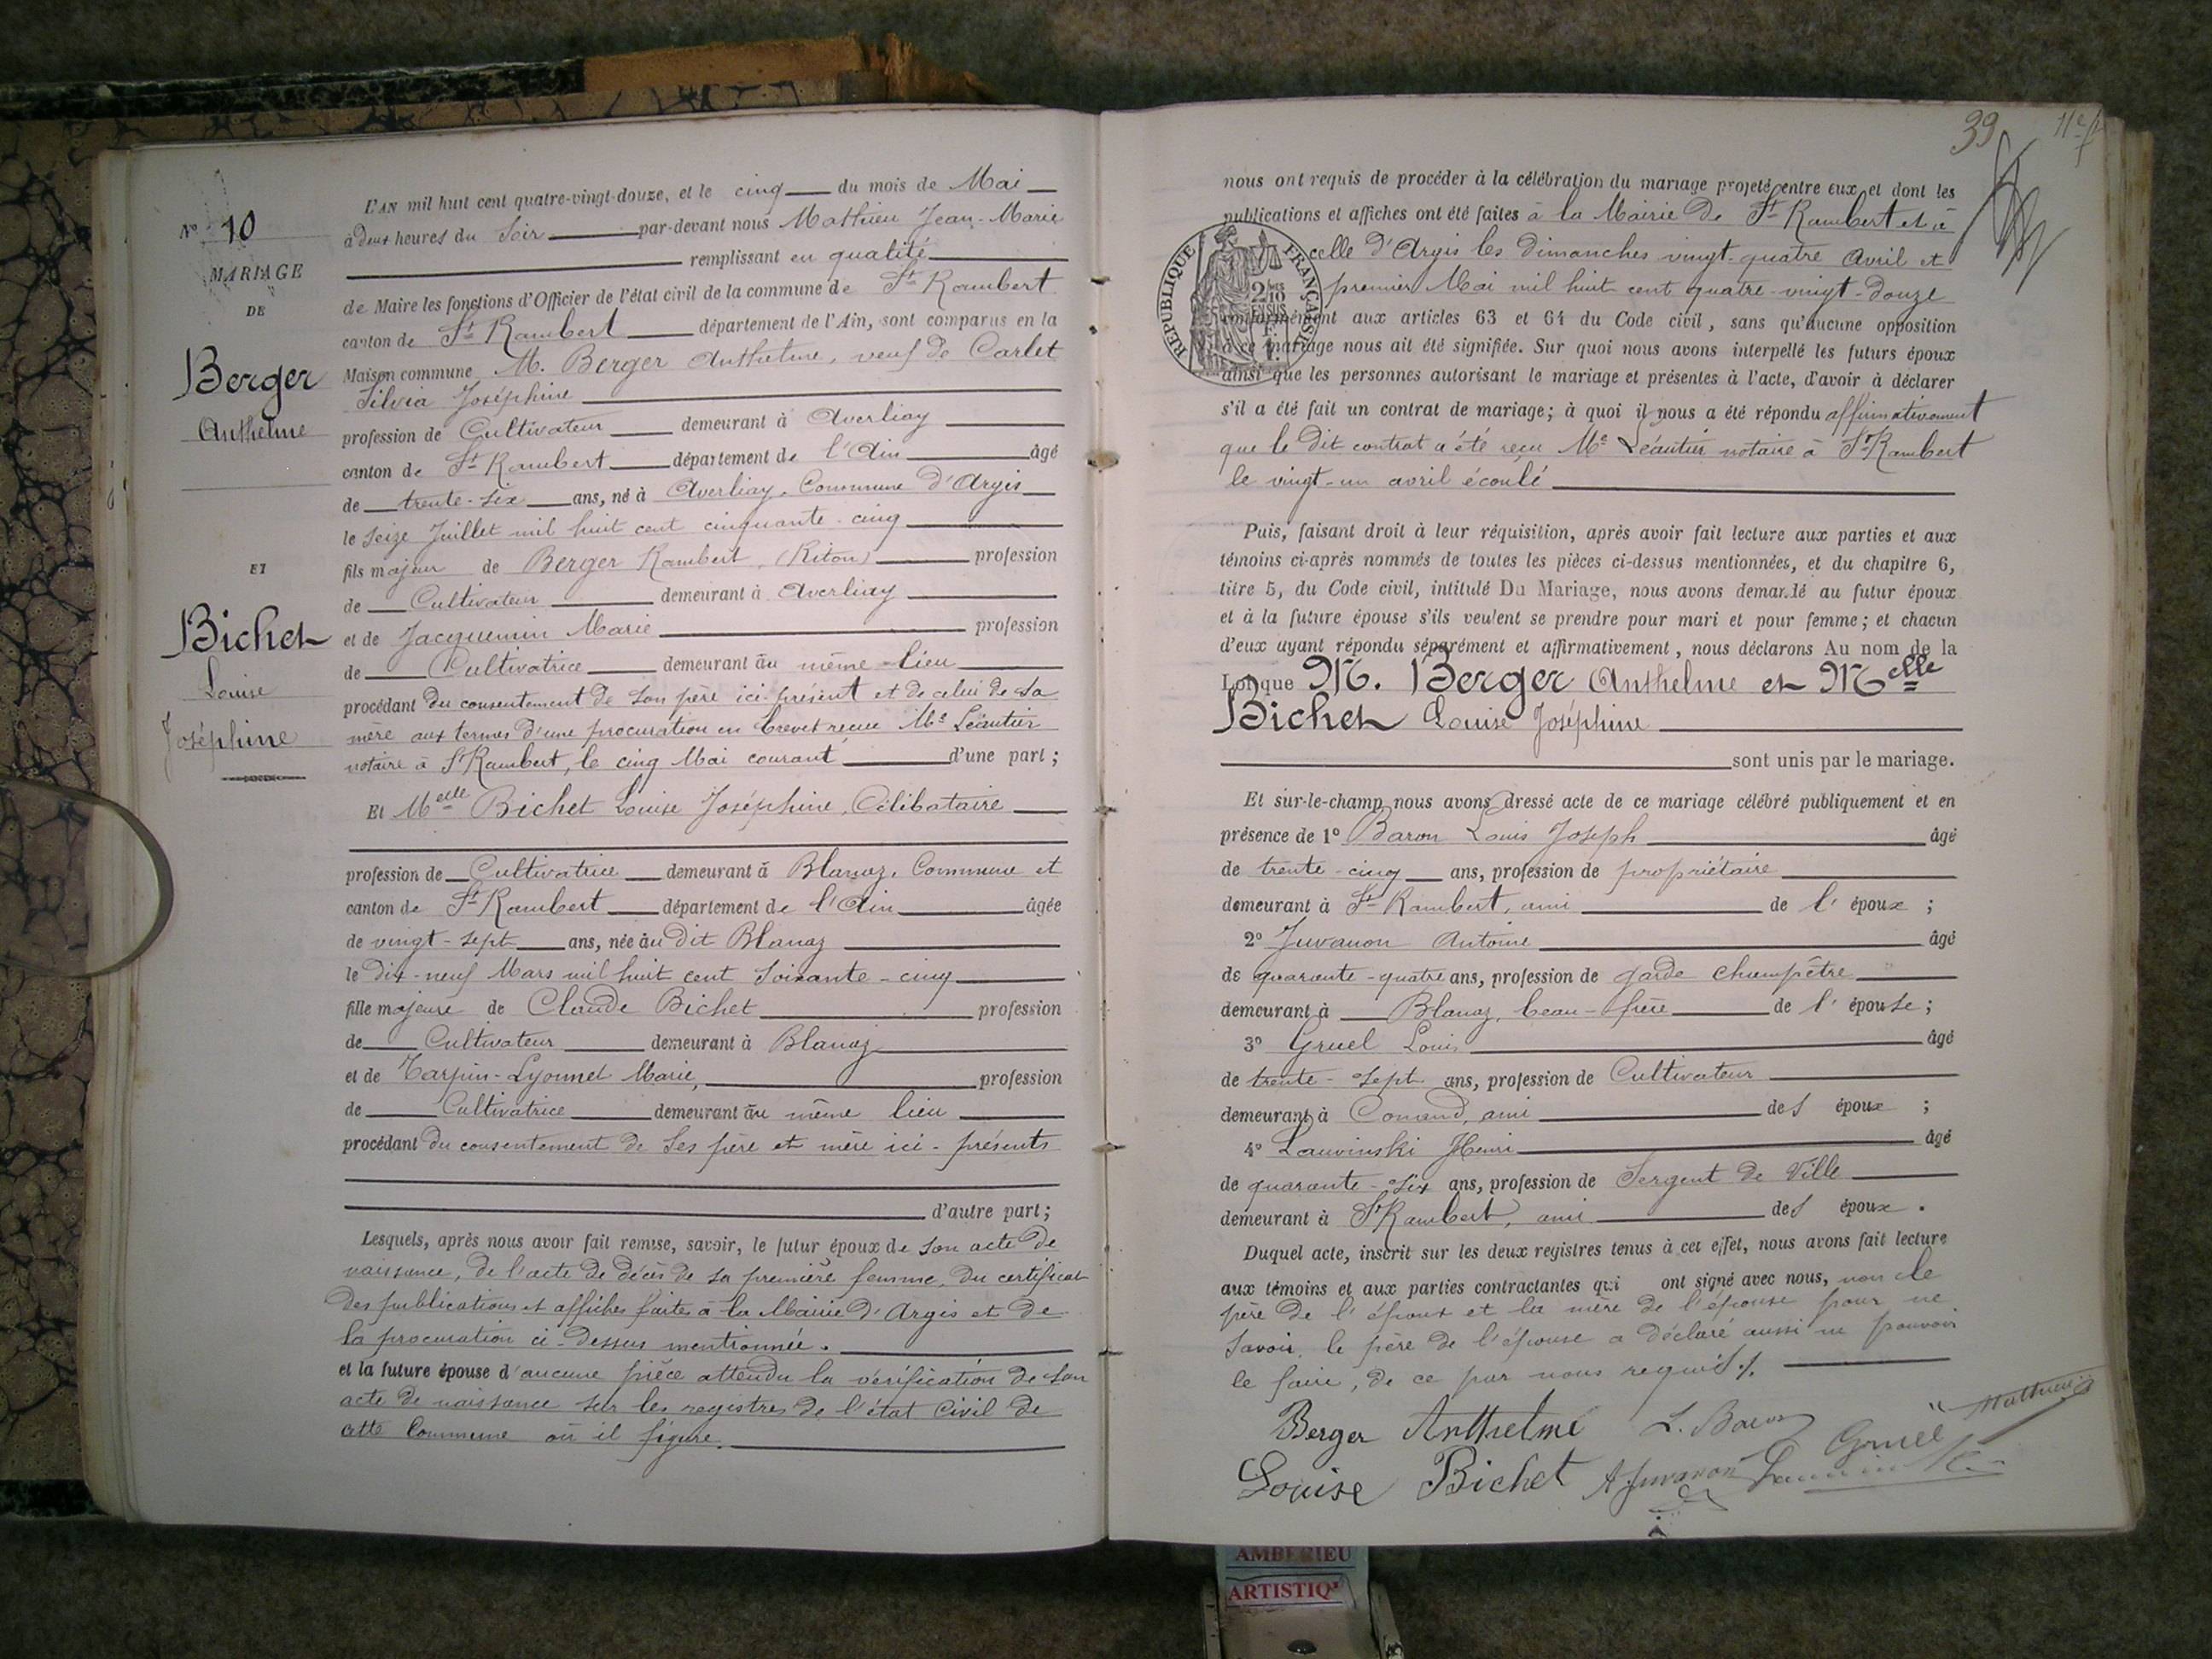 N° 10
MARIAGE
DE
Berger
Anthelme
ET
Bichet
Louise
Joséphine
L'AN mil huit cent quatre-vingt-douze, et le cinq du mois de Mai
à deux heures du soir par-devant nous Mathieu Jean-Marie
remplissant en qualité
de Maire les fonctions d'Officier de l'état civil de la commune de St Rambert
canton de St Rambert département de l'Ain, sont comparus en la
Maison commune M. Berger Anthelme, veuf de Carlet
Silvia Joséphine
profession de Cultivateur demeurant à Averliay
canton de St Rambert département de l'Ain âgé
de trente-six ans, né à Averliay, Commune d'Argis
le seize Juillet mil huit cent cinquante-cinq
fils majeur de Berger Rambert, (Riton) profession
de Cultivateur demeurant à Averliay
et de Jacquemin Marie profession
de Cultivatrice demeurant au même lieu
procédant du consentement de son père ici-présent et de celui de sa
mère aux termes d'une procuration en brevet reçue Me Léautier
notaire à St Rambert, le cinq Mai courant d'une part ;
Et Melle Bichet Louise Joséphine, Célibataire
profession de Cultivatrice demeurant à Blanaz, Commune et
canton de St Rambert département de l'Ain âgée
de vingt-sept ans, née au dit Blanaz
le dix-neuf Mars mil huit cent soixante-cinq
fille majeure de Claude Bichet profession
de Cultivateur demeurant à Blanaz
et de Tarpin-Lyonnet Marie, profession
de Cultivatrice demeurant au même lieu
procédant du consentement de ses père et mère ici-présents
d'autre part ;
Lesquels, après nous avoir fait remise, savoir, le futur époux de son acte de
naissance, de l'acte de décès de sa première femme, du certificat
des publications et affiches faites à la Mairie d'Argis et de
la procuration ci-dessus mentionnée.
et la future épouse d'aucune pièce attendu la vérification de son
acte de naissance sur les registres de l'état civil de
cette Commune où il figure.
39
11e f
nous ont requis de procéder à la célébration du mariage projeté entre eux et dont les
publications et affiches ont été faites à la Mairie de St Rambert et à
celle d'Argis les dimanches vingt-quatre Avril et
premier Mai mil huit cent quatre-vingt-douze
conformément aux articles 63 et 64 du Code civil, sans qu'aucune opposition
à ce mariage nous ait été signifiée. Sur quoi nous avons interpellé les futurs époux
ainsi que les personnes autorisant le mariage et présentes à l'acte, d'avoir à déclarer
s'il a été fait un contrat de mariage ; à quoi il nous a été répondu affirmativement
que le dit contrat a été reçu Me Léautier notaire à St Rambert
le vingt-un avril écoulé
RÉPUBLIQUE FRANÇAISE
Puis, faisant droit à leur réquisition, après avoir fait lecture aux parties et aux
témoins ci-après nommés de toutes les pièces ci-dessus mentionnées, et du chapitre 6,
titre 5, du Code civil, intitulé Du Mariage, nous avons demandé au futur époux
et à la future épouse s'ils veulent se prendre pour mari et pour femme ; et chacun
d'eux ayant répondu séparément et affirmativement, nous déclarons Au nom de la
Loi que M. Berger Anthelme et Melle
Bichet Louise Joséphine
sont unis par le mariage.
Et sur-le-champ nous avons dressé acte de ce mariage célébré publiquement et en
présence de 1° Baron Louis Joseph âgé
de trente-cinq ans, profession de propriétaire
demeurant à St Rambert, ami de l'époux ;
2° Juvanon Antoine âgé
de quarante-quatre ans, profession de garde champêtre
demeurant à Blanaz, beau-frère de l'épouse ;
3° Gruel Louis âgé
de trente-sept ans, profession de Cultivateur
demeurant à Conand, ami des époux ;
4° Lauvinski Henri âgé
de quarante-six ans, profession de Sergent de Ville
demeurant à St Rambert, ami des époux .
Duquel acte, inscrit sur les deux registres tenus à cet effet, nous avons fait lecture
aux témoins et aux parties contractantes qui ont signé avec nous, non le
père de l'époux et la mère de l'épouse pour ne
savoir, le père de l'épouse a déclaré aussi ne pouvoir
le faire, de ce par nous requis ./.
Berger Anthelme L. Baron Gruel Mathieu
Louise Bichet A Juvanon
AMBERIEU
ARTISTIQ